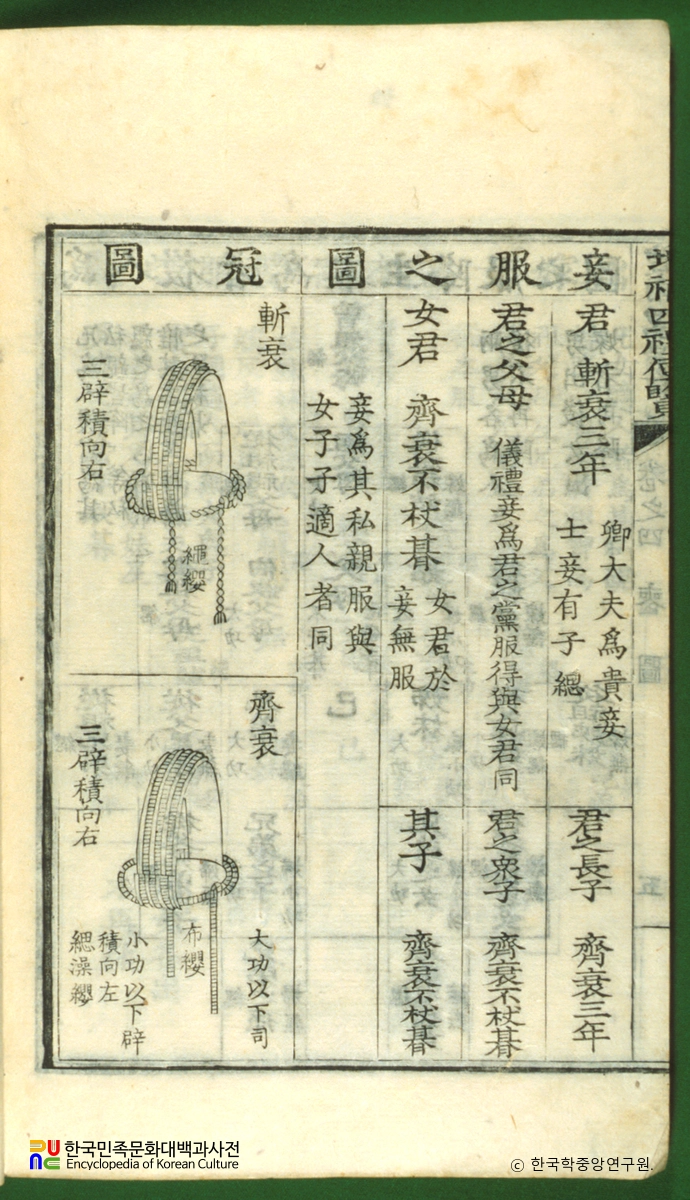 增補四禮便覽
卷之四 喪 圖
五
妾服之圖
君 斬衰三年
卿大夫爲貴妾
士妾有子緦
君之長子 齊衰三年
君之父母
儀禮妾爲君之黨服得與女君同
君之衆子 齊衰不杖朞
女君 齊衰不杖朞
女君於
妾無服
其子 齊衰不杖朞
妾爲其私親服與
女子子適人者同
冠圖
斬衰
繩纓
三辟積向右
齊衰
大功以下司
布纓
三辟積向右
小功以下辟
積向左
緦澡纓
한국민족문화대백과사전
Encyclopedia of Korean Culture
© 한국학중앙연구원.